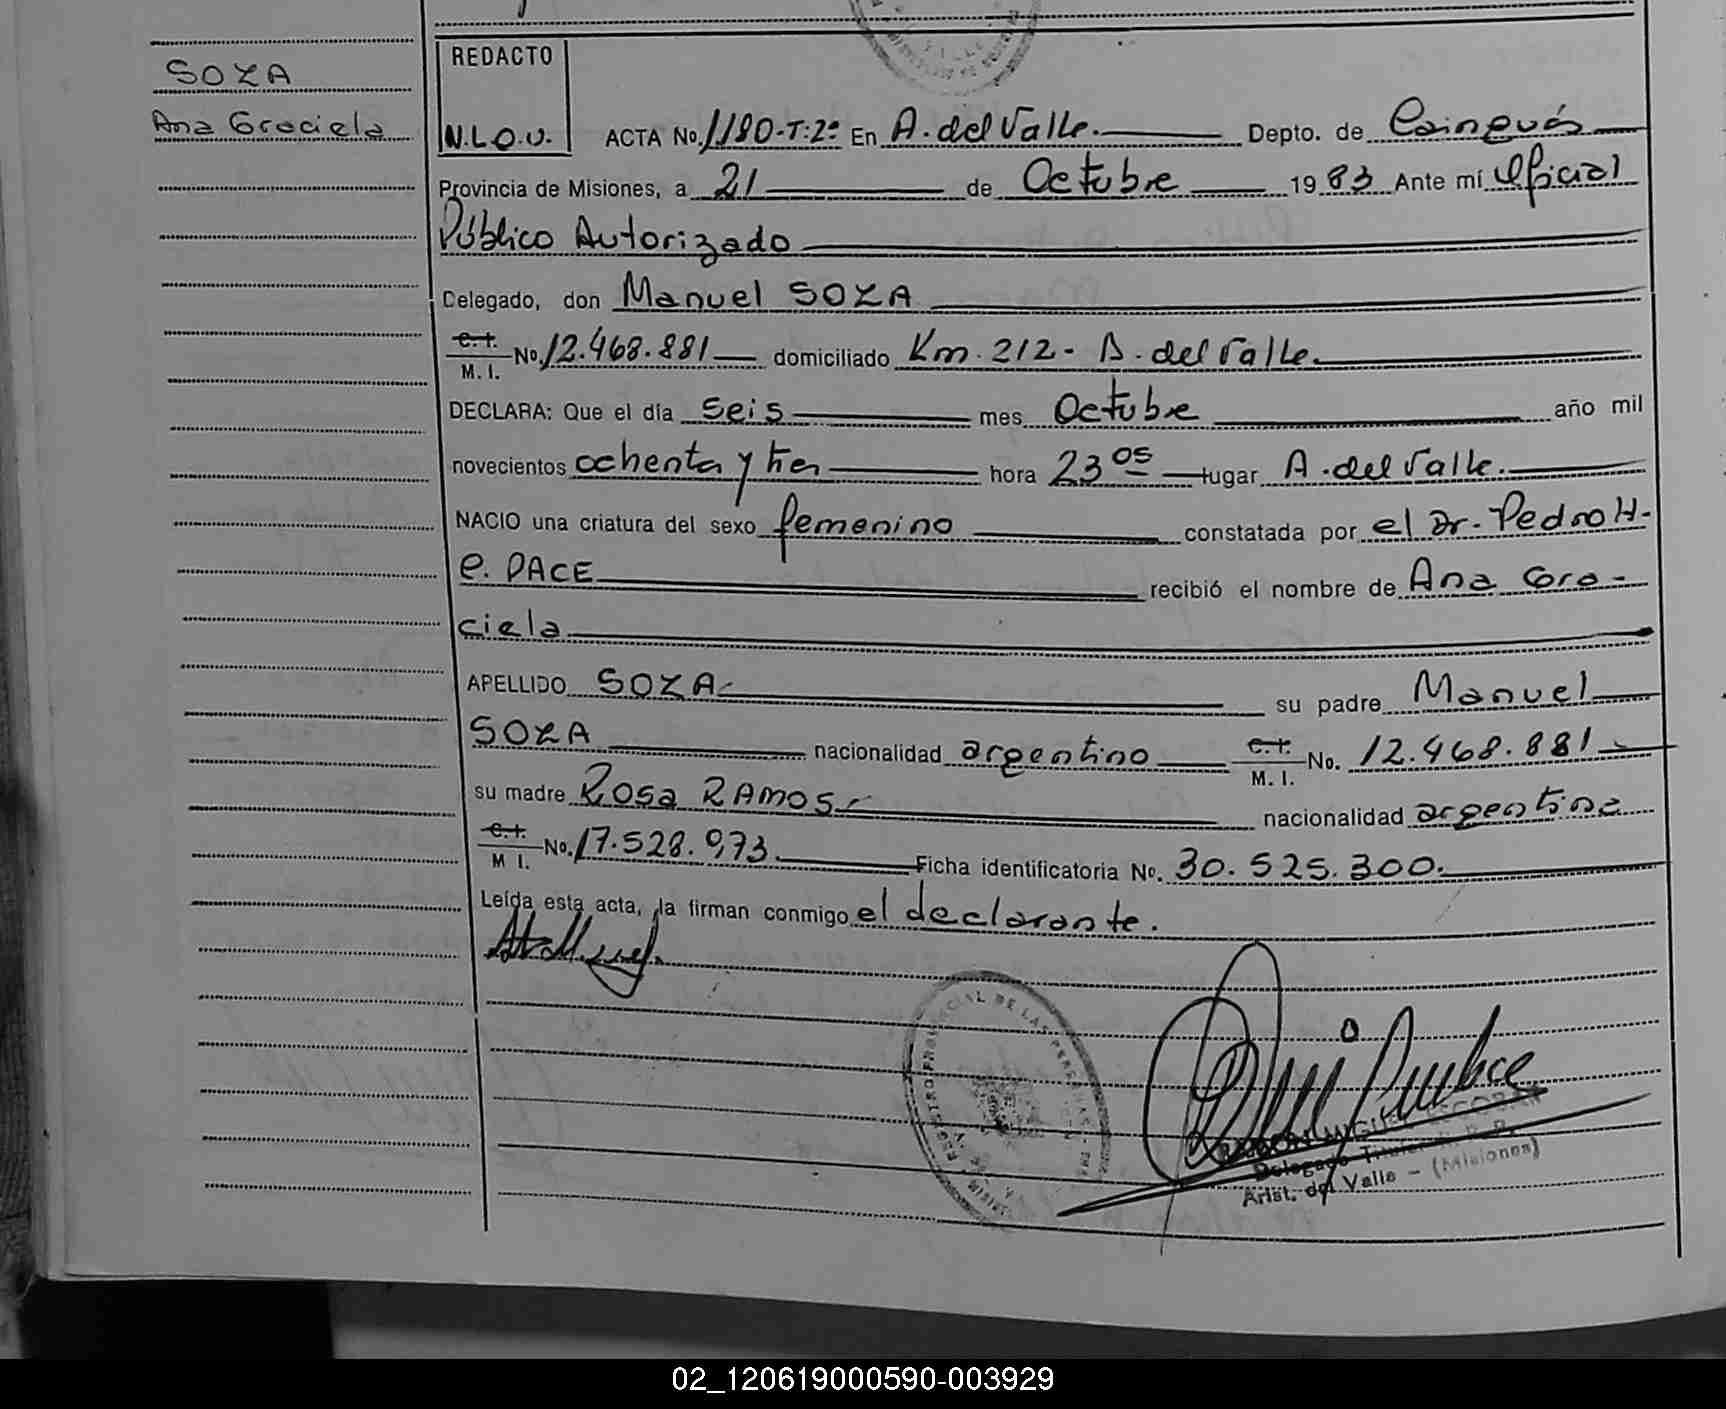 SOZA
Ana Graciela
REDACTO
N.L.O.V.
ACTA No. 1180-T:2º En A. del Valle. Depto. de Cainguás
Provincia de Misiones, a 21 de Octubre 1983 Ante mí Oficial
Público Autorizado
Delegado, don Manuel SOZA
C.I. M. I. No. 12.468.881 domiciliado Km. 212 - A. del Valle.
DECLARA: Que el día seis mes Octubre año mil
novecientos ochenta y tres hora 23 05 lugar A. del Valle.
NACIO una criatura del sexo femenino constatada por el Dr. Pedro H.
C. PACE recibió el nombre de Ana Gra-
ciela
APELLIDO SOZA su padre Manuel
SOZA nacionalidad argentino C.I. M. I. No. 12.468.881
su madre Rosa RAMOS nacionalidad argentina
C.I. M I. No. 17.528.973 Ficha identificatoria No. 30.525.300.
Leída esta acta, la firman conmigo el declarante.
REGISTRO PROVINCIAL DE LAS PERSONAS
MIGUEL ESCOBAR
Delegado Titular
Arist. del Valle - (Misiones)
02_120619000590-003929